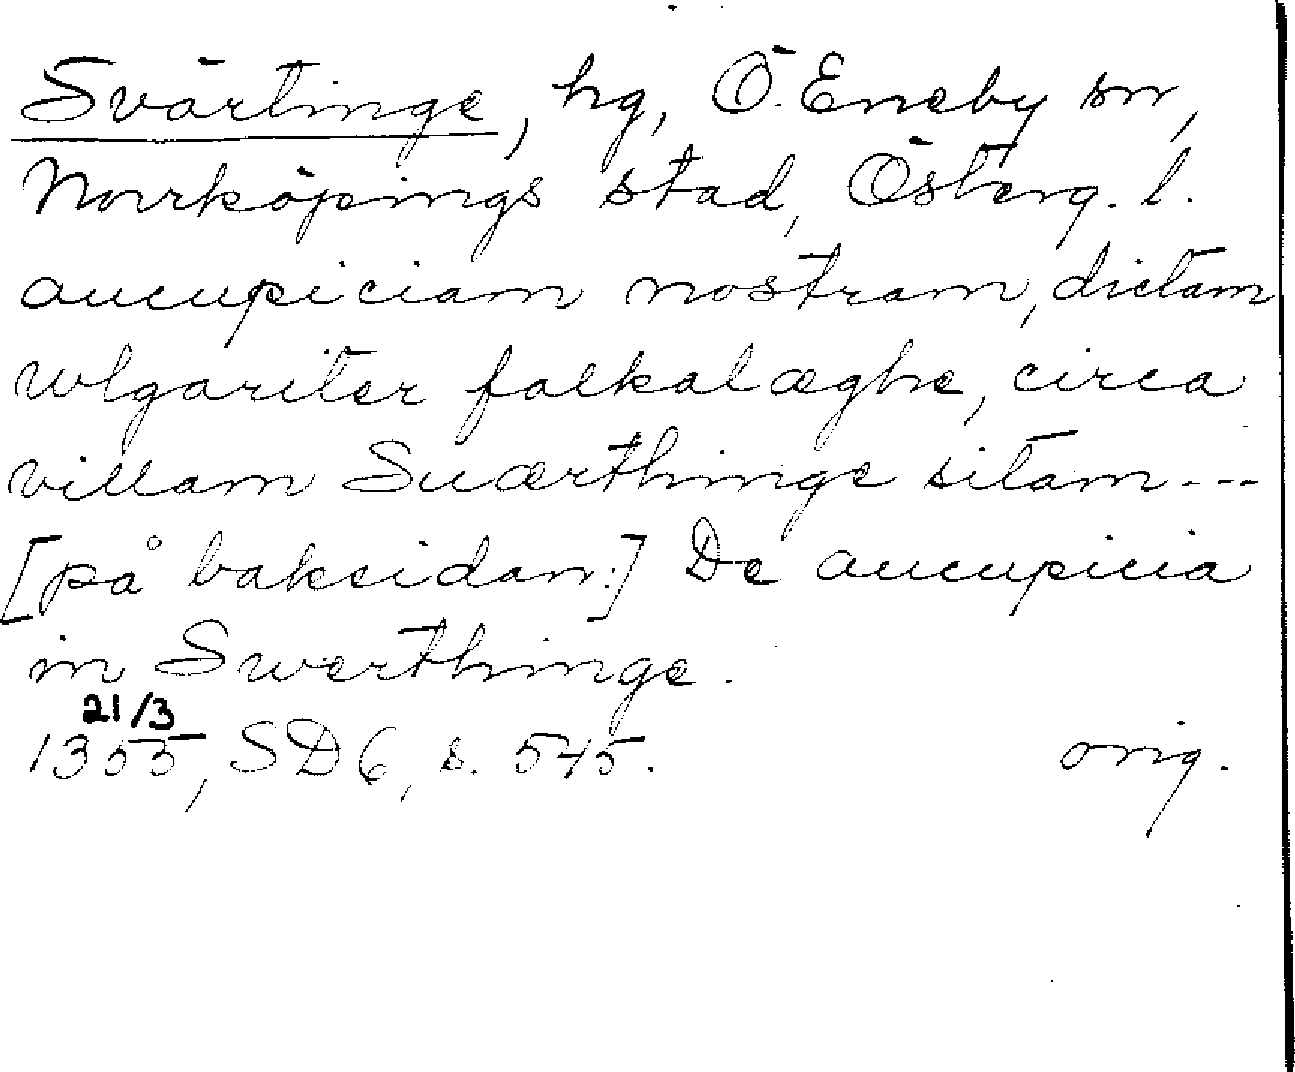 Svärtinge, hg, Ö. Eneby sn,
Norrköpings stad, Österg. l.
aucupiciam nostram, dictam
wlgariter falkalæghe, circa
villam Suærthinge sitam ---
[på baksidan:] De aucupicia
in Swerthinge.
21/3
1355, SD 6, s. 545. orig.